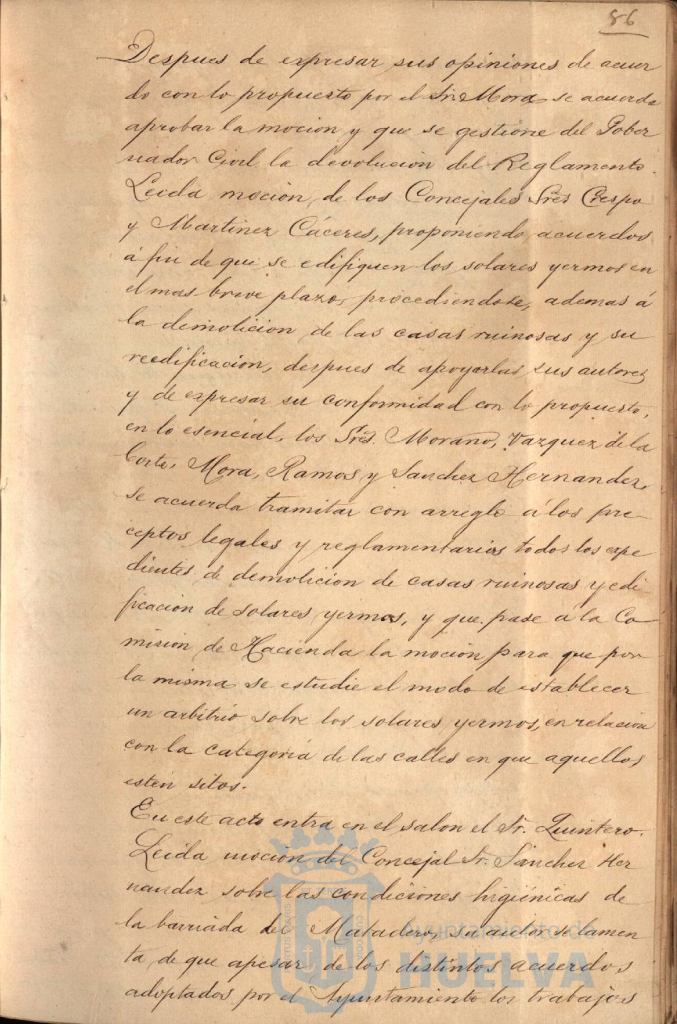 86
Despues de expresar sus opiniones de acuer
do con lo propuesto por el Sr. Mora se acuerda
aprobar la moción y que se gestione del Gober
nador Civil la devolución del Reglamento.
Leida moción de los Concejales Sres Crespo
y Martinez Cáceres, proponiendo acuerdos
á fin de que se edifiquen los solares yermos en
el mas breve plazo, procediendose, ademas á
la demolicion de las casas ruinosas y su
reedificacion, despues de apoyarlas sus autores
y de expresar su conformidad con lo propuesto,
en lo esencial, los Sres. Morano, Vazquez de la
Corte, Mora, Ramos y Sanchez Hernandez,
se acuerda tramitar con arreglo á los pre-
ceptos legales y reglamentarios todos los expe
dientes de demolicion de casas ruinosas y edi
ficacion de solares yermos, y que pase a la Co-
misión de Hacienda la moción para que por
la misma se estudie el modo de establecer
un arbitrio sobre los solares yermos, en relacion
con la categoria de las calles en que aquellos
esten sitos.
En este acto entra en el salon el Sr. Quintero.
Leida moción del Concejal Sr. Sanchez Her
nandez sobre las condiciones higiénicas de
la barriada del Matadero, su autor se lamen
ta de que apesar de los distintos acuerdos
adoptados por el Ayuntamiento los trabajos
Ayuntamiento de
HUELVA